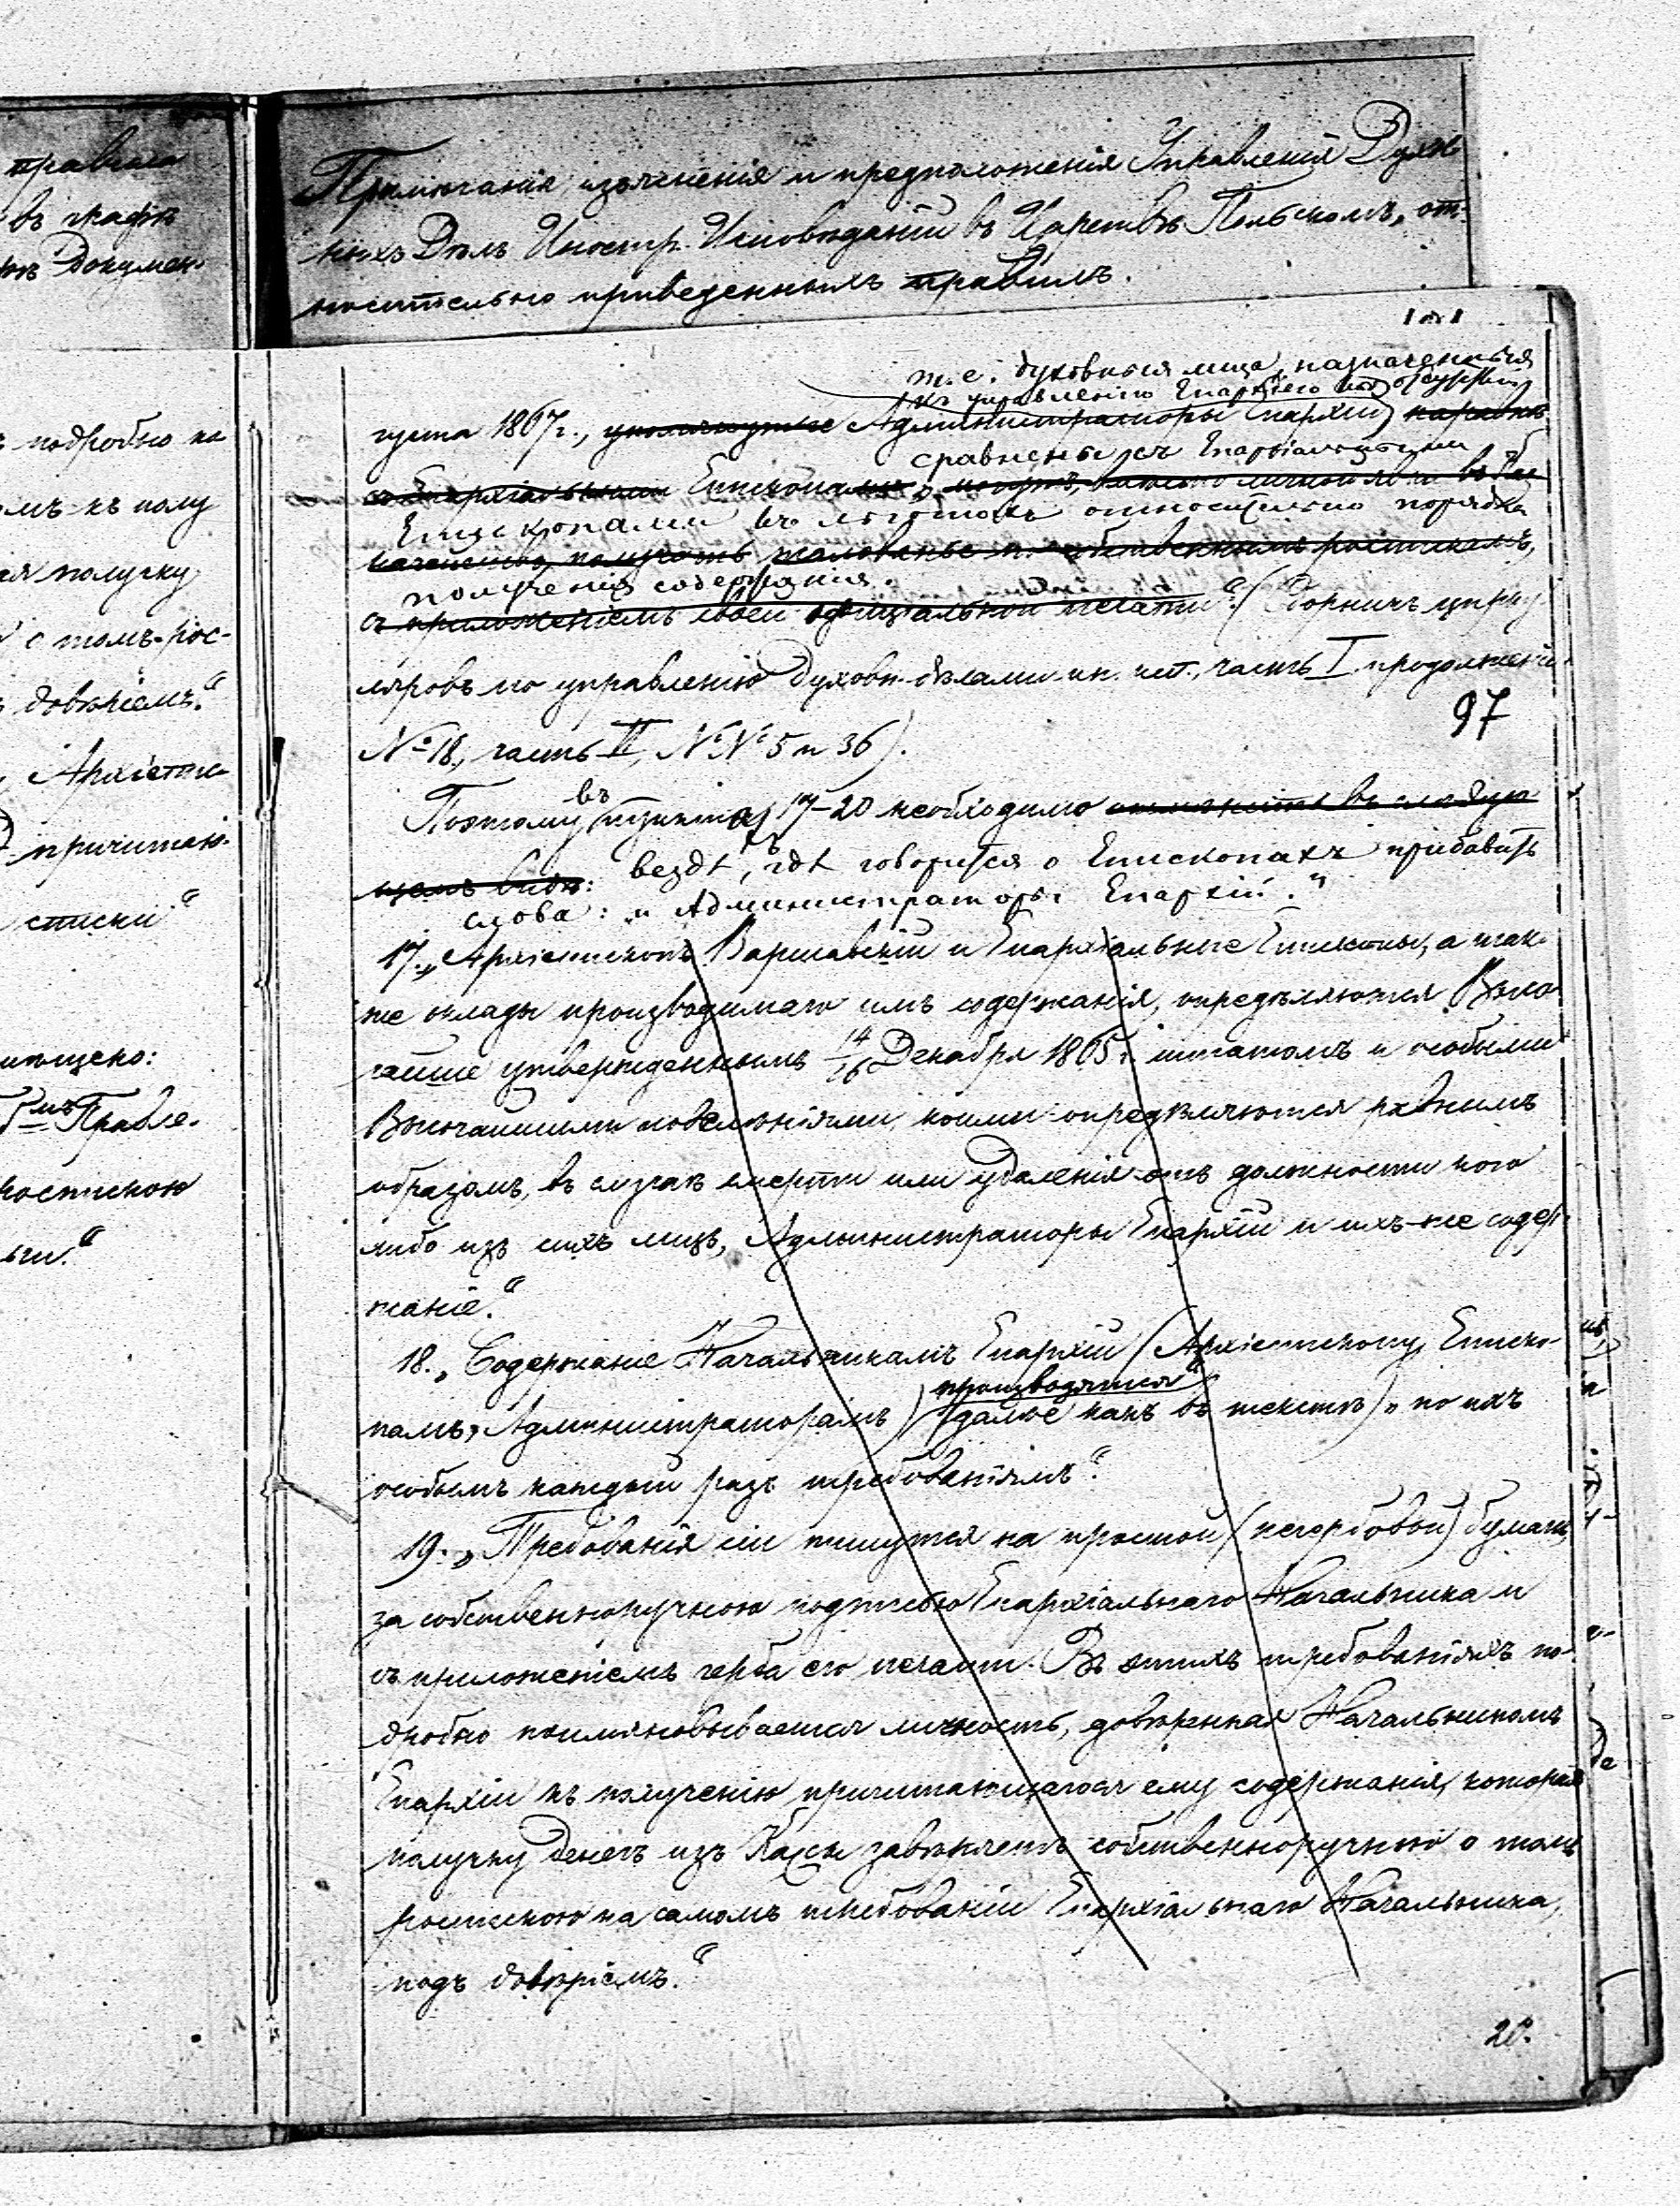 правила
въ графѣ
Докумен-
подробно на
омъ къ полу
ая получку
о томъ-рос-
довѣріемъ."
Архіепис-
причитаю-
списки"
мѣщено:
Правле-
роспискою
Примѣчанія, изъясненія и предположенія Управленія Духов-
ныхъ Дѣлъ Иностр. Исповѣданій въ Царствѣ Польскомъ, от-
носительно приведенныхъ правилъ.
т.е. духовныя лица, назначенныя
къ управленію Епархіею
густа 1867 г., упомянутые Администраторы Епархій наравнѣ
сравнены съ Епархіальными
съ Епархіальными Епископами, могутъ,
Епископами въ льготахъ относительно порядка
получать жалованье по собственнымъ роспискамъ,
полученія содержанія.
съ приложеніемъ своей официальной печати" (Сборникъ цирку-
ляровъ по управленію духовн. дѣлами ин. исп., часть I продолженіе
97
№ 18, часть II, №№ 5 и 36).
въ
Поэтому пунктахъ 17-20 необходимо изложить въ слѣдую-
щемъ видѣ: вездѣ, гдѣ говорится о Епископахъ прибавить
слова: "и Администраторы Епархій."
17. "Архіепископъ Варшавскій и Епархіальные Епископы, а так-
же оклады производимаго имъ содержанія, опредѣляются Высо-
чайше утвержденнымъ 14/26 Декабря 1865 г. штатомъ и особыми
Высочайшими повелѣніями, коими опредѣляются равнымъ
образомъ, въ случаѣ смерти или удаленія отъ должности кого
либо изъ сихъ лицъ, Администраторы Епархіи и ихъ-же содер-
жаніе."
18. "Содержаніе Начальникамъ Епархій (Архіепископу, Еписко-
производится"
памъ, Администраторамъ) (далѣе какъ въ текстѣ) "по ихъ
особымъ каждый разъ требованіямъ."
19. "Требованія сіи пишутся на простой (негербовой) бумагѣ,
за собственноручною подписью Епархіальнаго Начальника и
съ приложеніемъ герба его печати. Въ этихъ требованіяхъ по-
дробно поименовывается личность, довѣренная Начальникомъ
Епархіи къ полученію причитающагося ему содержанія, которая
получку денегъ изъ Кассы завѣряетъ собственноручною о томъ
роспискою на самомъ требованіи Епархіальнаго Начальника,
подъ довѣріемъ."
20.